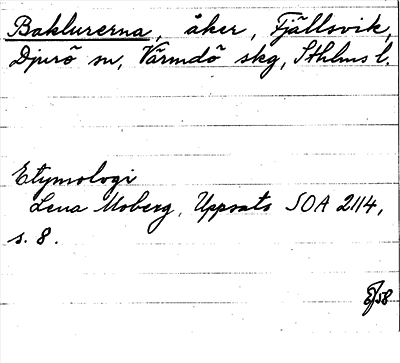 Baklurerna, åker, Fjällsvik,
Djurö sn, Värmdö skg, Sthlms l.
Etymologi
Lena Moberg, Uppsats SOA 2114,
s. 8.